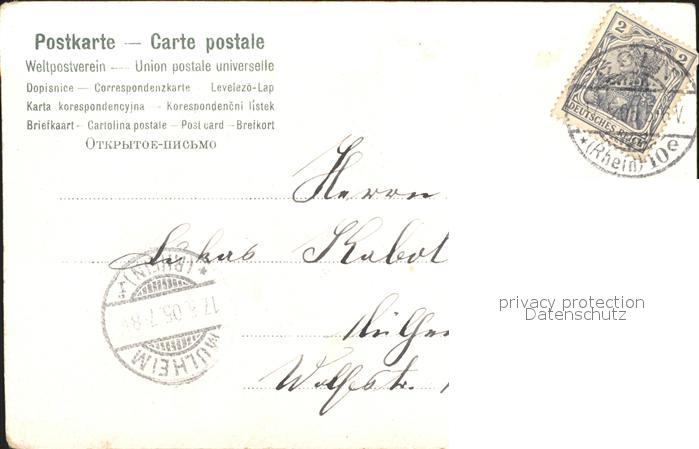 Postkarte — Carte postale
Weltpostverein — Union postale universelle
Dopisnice — Correspondenzkarte — Levelező-Lap
Karta korespondencyjna — Korespondenční lístek
Briefkaart — Cartolina postale — Post card — Brefkort
Открытое-письмо
2 2
DEUTSCHES REICH
(Rhein) 10e
Herrn
Lukas Kabot
Mülhe
Wolfstr.
MÜLHEIM
(RHEIN)
privacy protection
Datenschutz